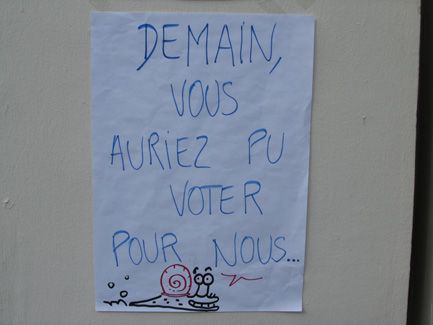 DEMAIN,
VOUS
AURIEZ PU
VOTER
POUR NOUS...